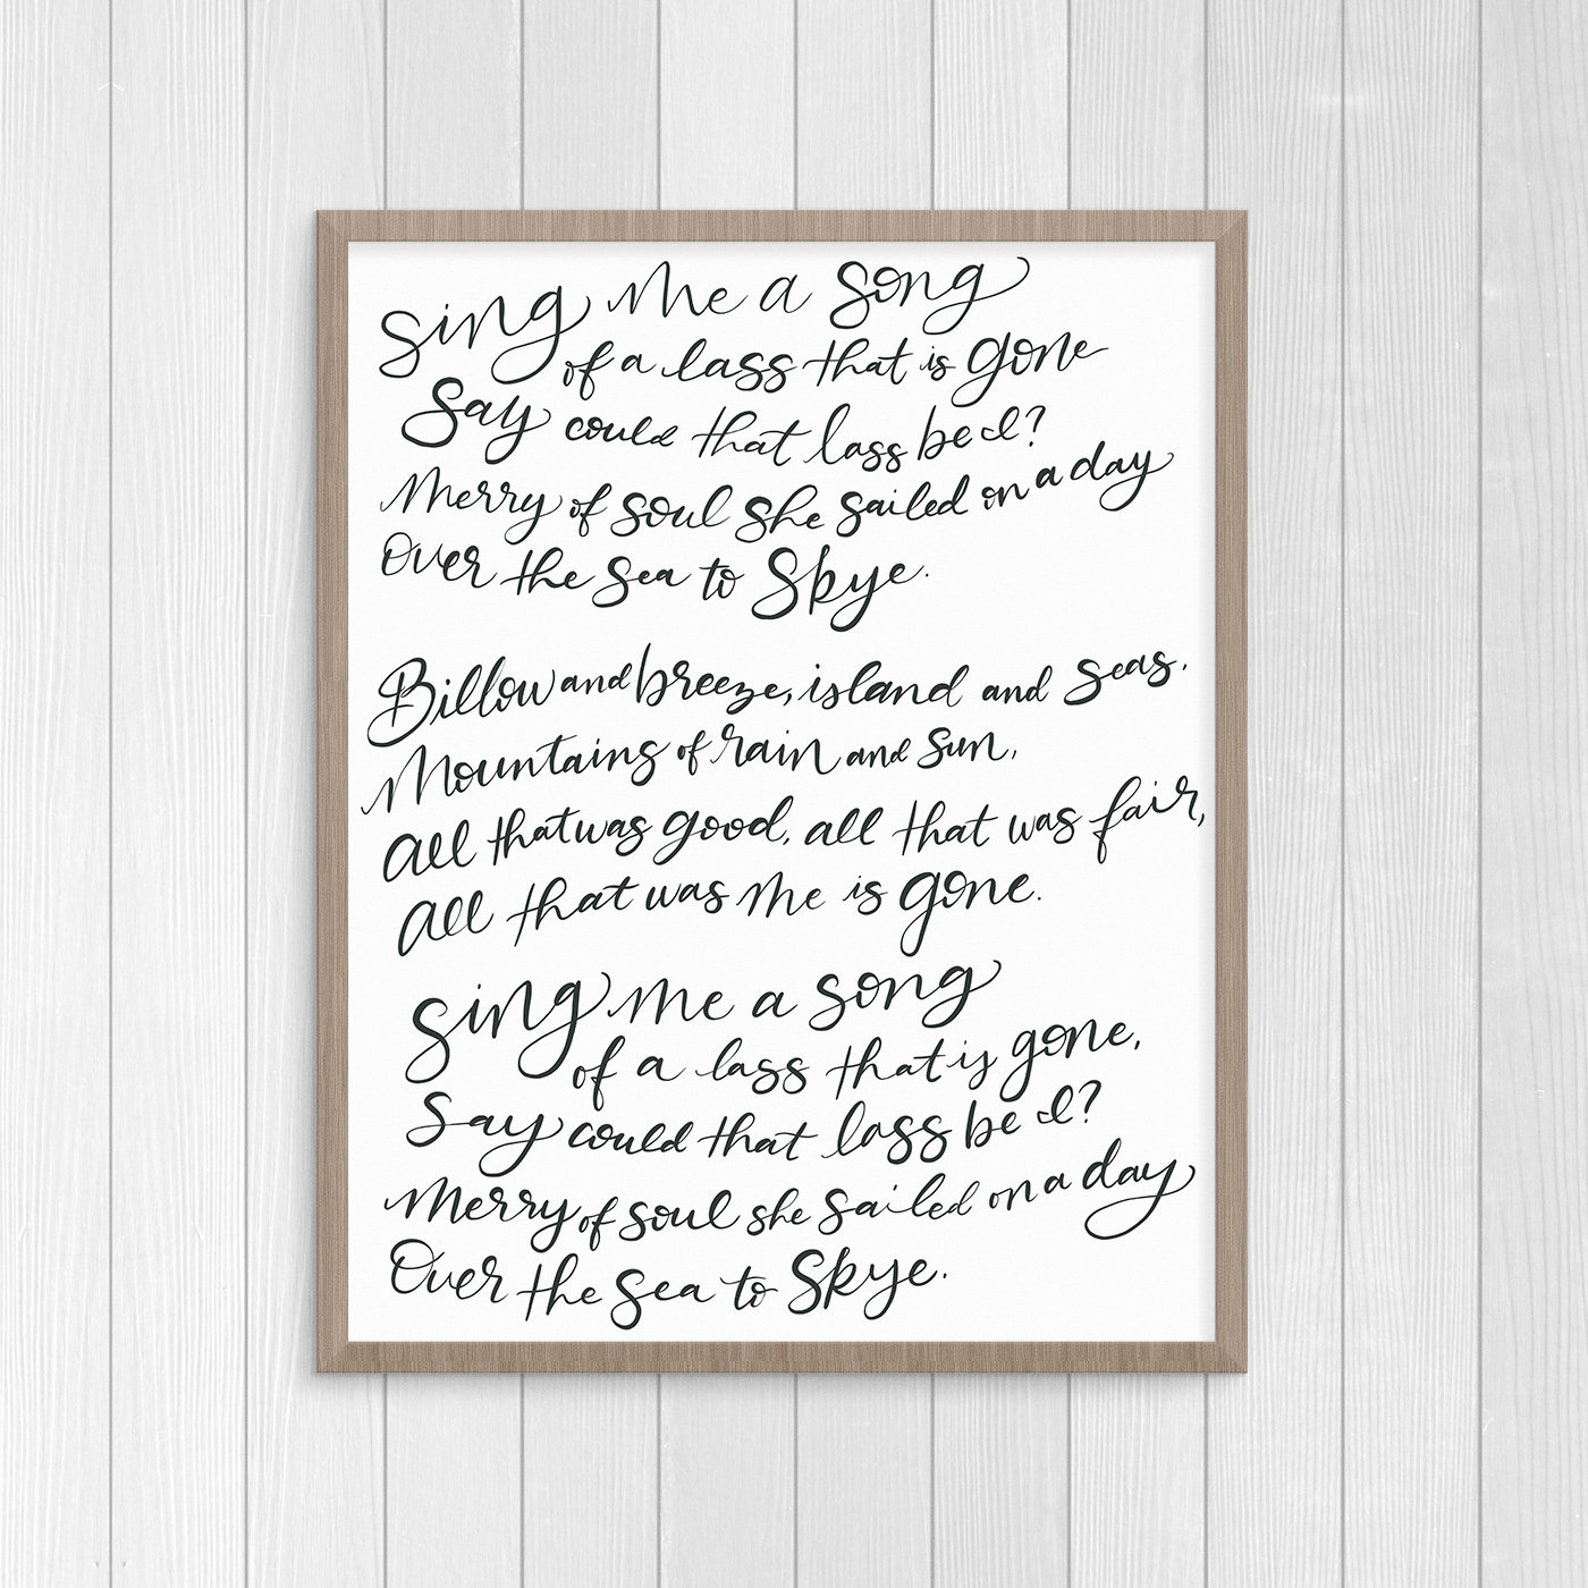 Sing me a song
of a lass that is gone
Say could that lass be I?
Merry of soul she sailed on a day
Over the sea to Skye.
Billow and breeze, island and seas.
Mountains of rain and sun,
All that was good, all that was fair,
All that was me is gone.
Sing me a song
of a lass that is gone,
Say could that lass be I?
Merry of soul she sailed on a day
Over the sea to Skye.